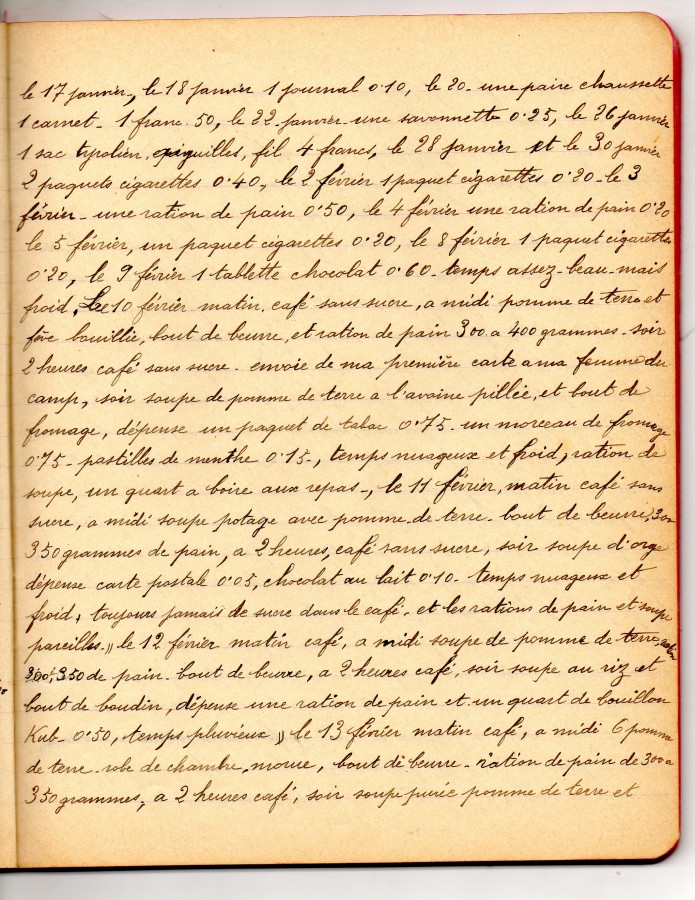 le 17 janvier, le 18 janvier 1 journal 0.10, le 20 - une paire chaussette
1 carnet - 1 franc 50, le 22 janvier - une savonnette 0.25, le 26 janvier
1 sac tyrolien, aiguilles, fil 4 francs, le 28 janvier et le 30 janvier
2 paquets cigarettes 0.40, le 2 février 1 paquet cigarettes 0.20 - le 3
février - une ration de pain 0.50, le 4 février une ration de pain 0.20
le 5 février, un paquet cigarettes 0.20, le 8 février 1 paquet cigarettes
0.20, le 9 février 1 tablette chocolat 0.60 - temps assez - beau - mais
froid, Le 10 février matin, café sans sucre, a midi pomme de terre et
féve bouillie, bout de beurre, et ration de pain 300 a 400 grammes - soir
2 heures café sans sucre - envoie de ma première carte a ma femme du
camp, soir soupe de pomme de terre a l'avoine pillée, et bout de
fromage, dépense un paquet de tabac 0.75 - un morceau de fromage
0.75 - pastilles de menthe 0.15 -, temps nuageux et froid, ration de
soupe, un quart a boire aux repas -, le 11 février, matin café sans
sucre, a midi soupe potage avec pomme de terre - bout de beurre, 300
350 grammes de pain, a 2 heures, café sans sucre, soir soupe d'orge
dépense carte postale 0.05, chocolat au lait 0.10 - temps nuageux et
froid, toujours jamais de sucre dans le café, et les rations de pain et soupe
pareilles, " le 12 février matin café, a midi soupe de pomme de terre, ration
300, 350 de pain - bout de beurre, a 2 heures café, soir soupe au riz et
bout de boudin, dépense une ration de pain et un quart de bouillon
Kub - 0.50, temps pluvieux " le 13 février matin café, a midi 6 pomme
de terre - robe de chambre, morue, bout de beurre - ration de pain de 300 a
350 grammes, a 2 heures café, soir soupe purée pomme de terre et